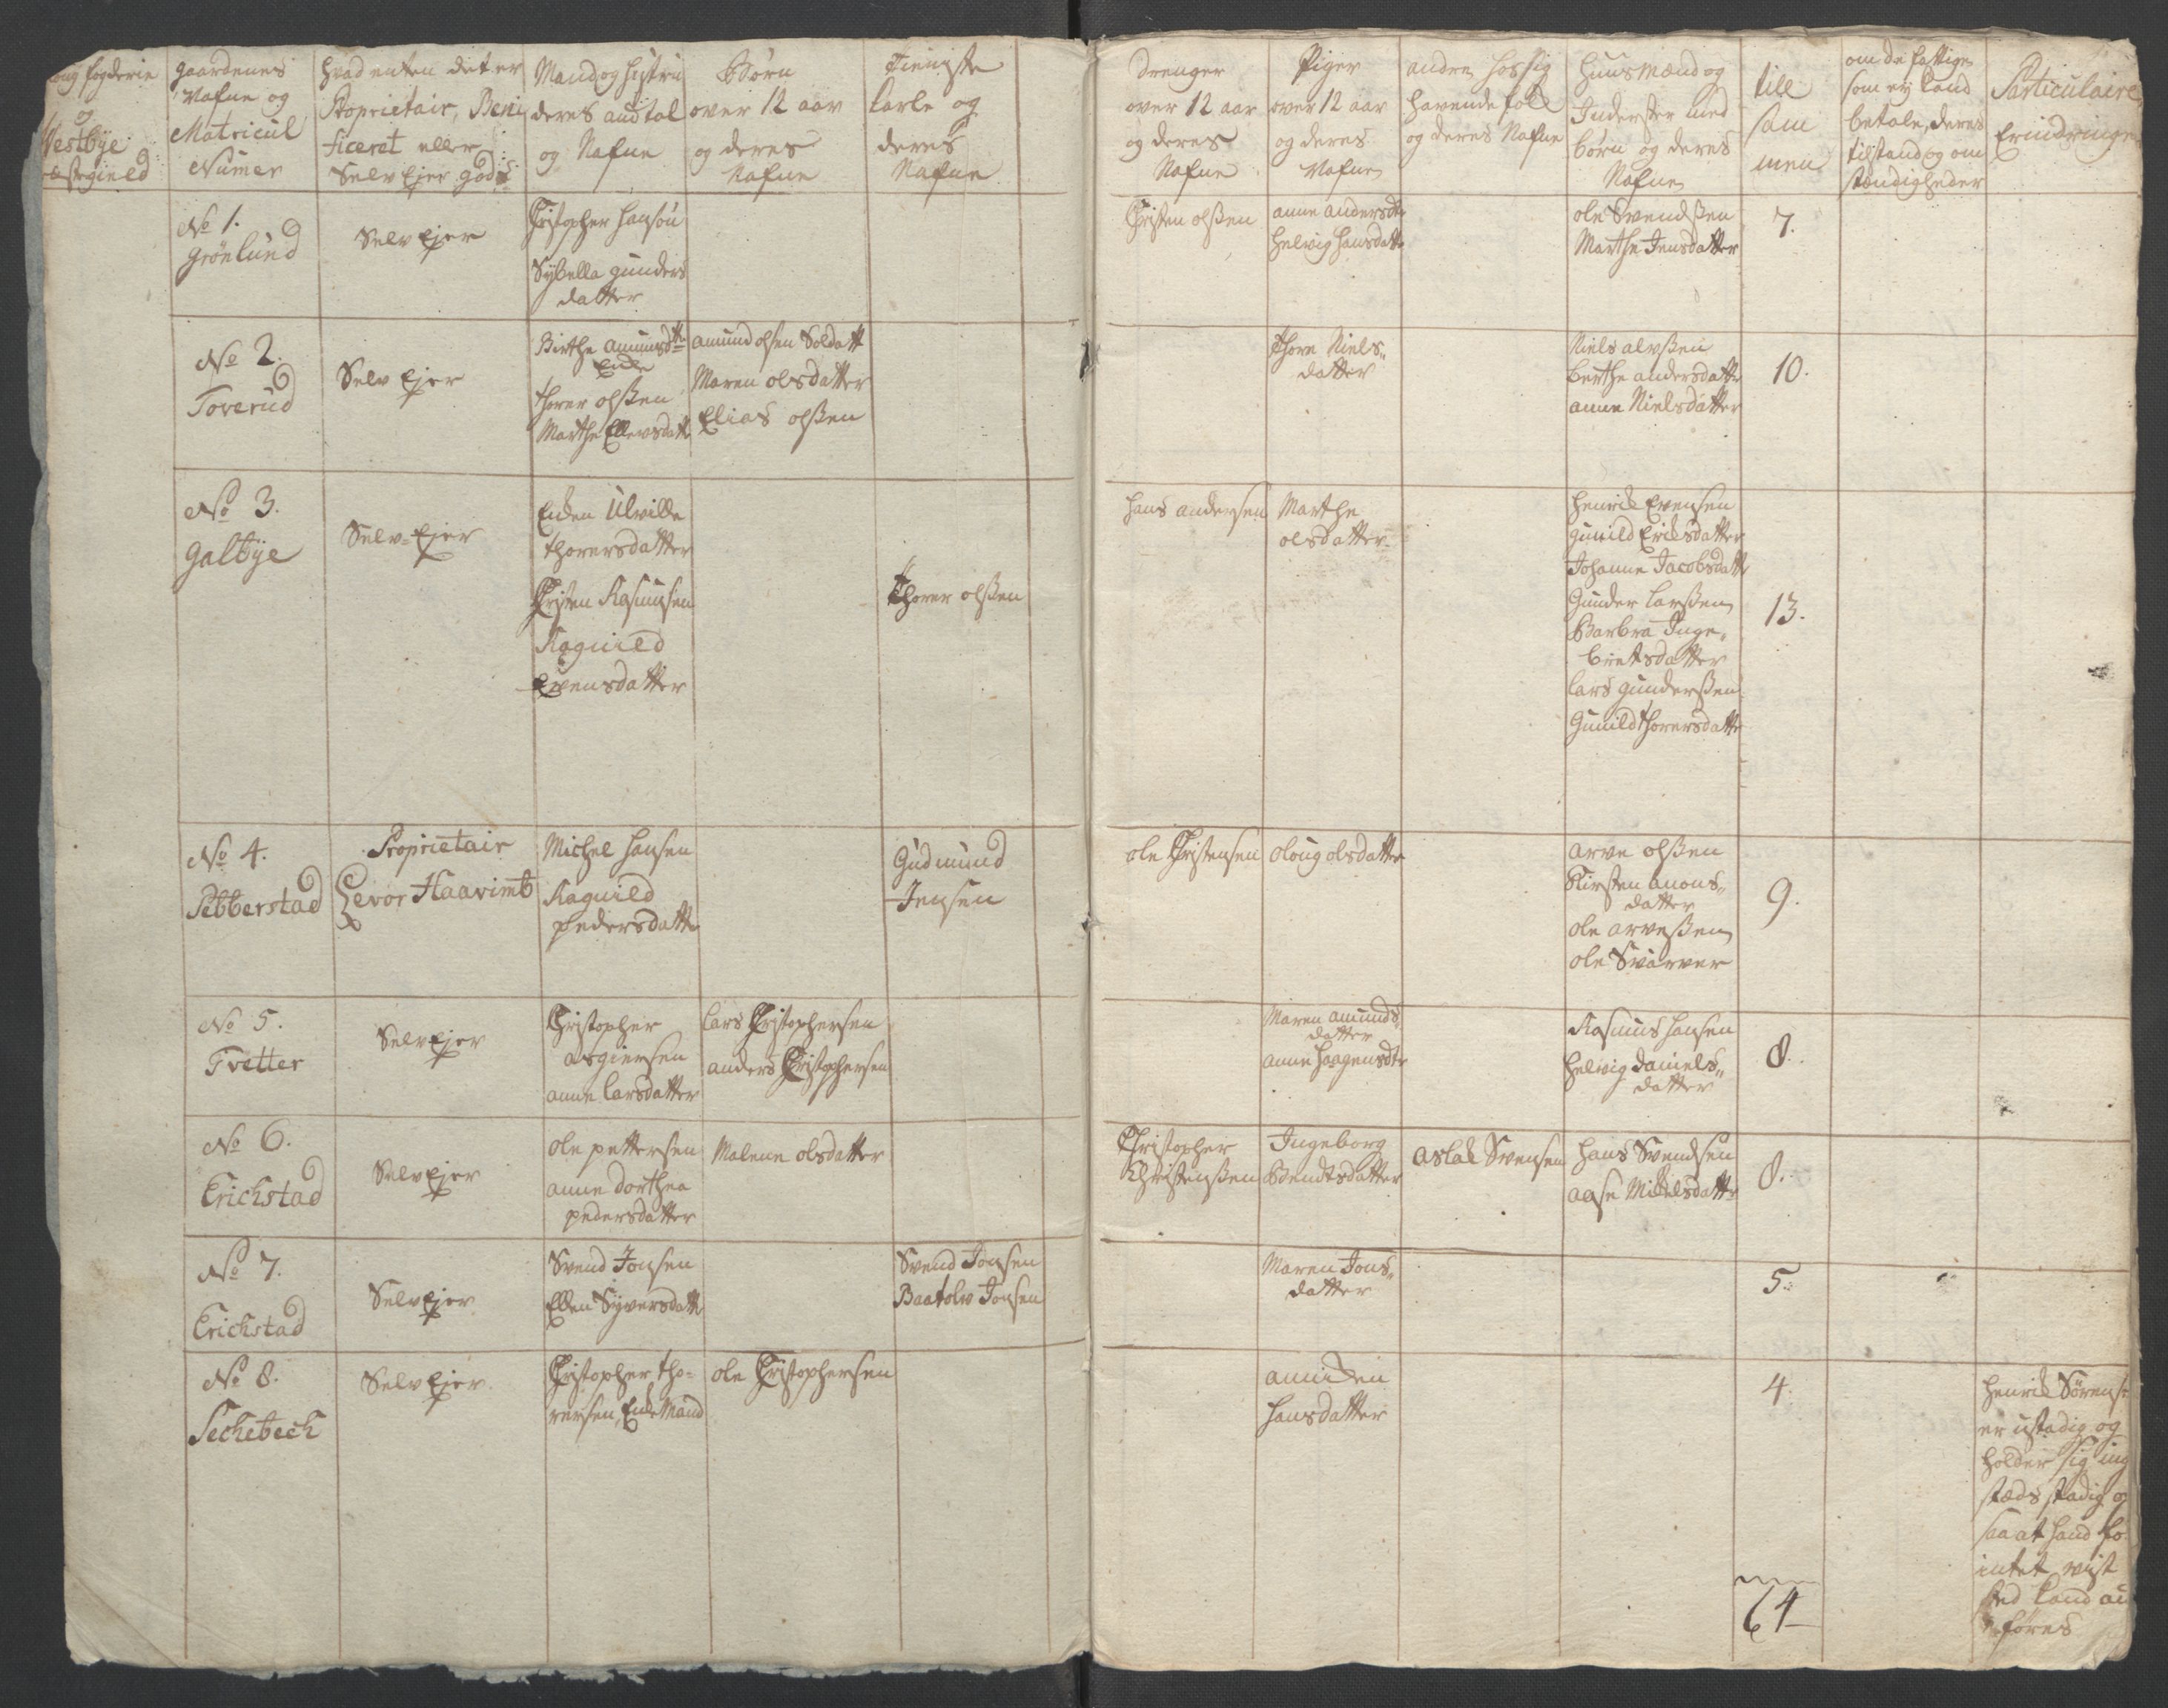 fogderie
Vestbÿe
gaardenes
Nafne og
Matricul
Numer
hvad enten det er
Proprietair, Beni
ficeret eller
Selv Ejer gods
Mand og hustru
deres andtal
og Nafne
Børn
over 12 aar
og deres
Nafne
Tieniste
karle og
deres
Nafne
drenger
over 12 aar
og deres
Nafne
Piger
over 12 aar
og deres
Nafne
andre hos sig
havende folk
og deres Nafne
huusmænd og
Inderster med
børn og deres
Nafne
till
sam
men
om de fattige
som ej kand
betale, deres
tilstand og om
stændigheder
Particulaire
Erindringer
No 1.
Grönlund
Selv Ejer
Christopher hansøn
Sybella gunders
datter
Christen olsßen
anne andersdtr
helvig hansdattr
ole Svendsßen
Marthe Jensdatter
7.
No 2.
Toverud
Selv Ejer
Birthe amunsdttr
Enke
thorer olsßen
Marthe Ellevsdatt
amund olsen Soldatt
Maren olsdatter
Elias olsßen
thore Niels„
datter
Niels alvsßen
berthe andersdattr
anne Nielsdatter
10.
No 3.
Galbÿe
Selv-Ejer
Enken Ulville
thorersdatter
Christen Rasmusen
Ragnild
Evensdatter
Thorer olsßen
hans andersen
Marthe
olsdatter
henrik Evensen
gunild Eriksdatter
Johanne Jacobsdatt
Gunder larsßen
Barbra Inge„
bretsdatter
lars gundersßen
Gunild thorersdattr
13.
No 4.
Sebberstad
Proprietair
Gevor Haavimb
Michel hansen
Ragnild
pedersdattr
Gudmund
Jensen
ole Christensen
oloug olsdatter
arve olsßen
Kirsten anons„
datter
ole arvesßen
ole Svarver
9.
No 5.
Tvetter
Selv Ejer
Christopher
asgiersen
anne larsdatter
lars Christophersen
anders Christophersen
Maren amunds„
datter
anne haagensdtr
Rasmus hansen
helvig daniels„
datter
8.
No 6.
Erichstad
Selv Ejer
ole pettersen
anne dorthea
pedersdatter
Malene olsdatter
Christopher
Christensßen
Ingeborg
Bendtsdatter
aslak Svensen
hans Svendsen
aase Mickelsdattr
8.
No 7.
Erichstad
Selv Ejer
Svend Jonsen
Ellen Syversdatt
Svend Jonsen
Baatolv Jonsen
Maren Jons„
datter
5.
No 8.
Sechebech
Selv Ejer
Christopher tho-
rersen, Enke Mand
ole Christophersen
anniken
hansdatter
4.
henrik Sørens:
er ustadig og
holder sig ing
stæds stadig o
saa at hand fo
intet vist
sted kand an
føres
64